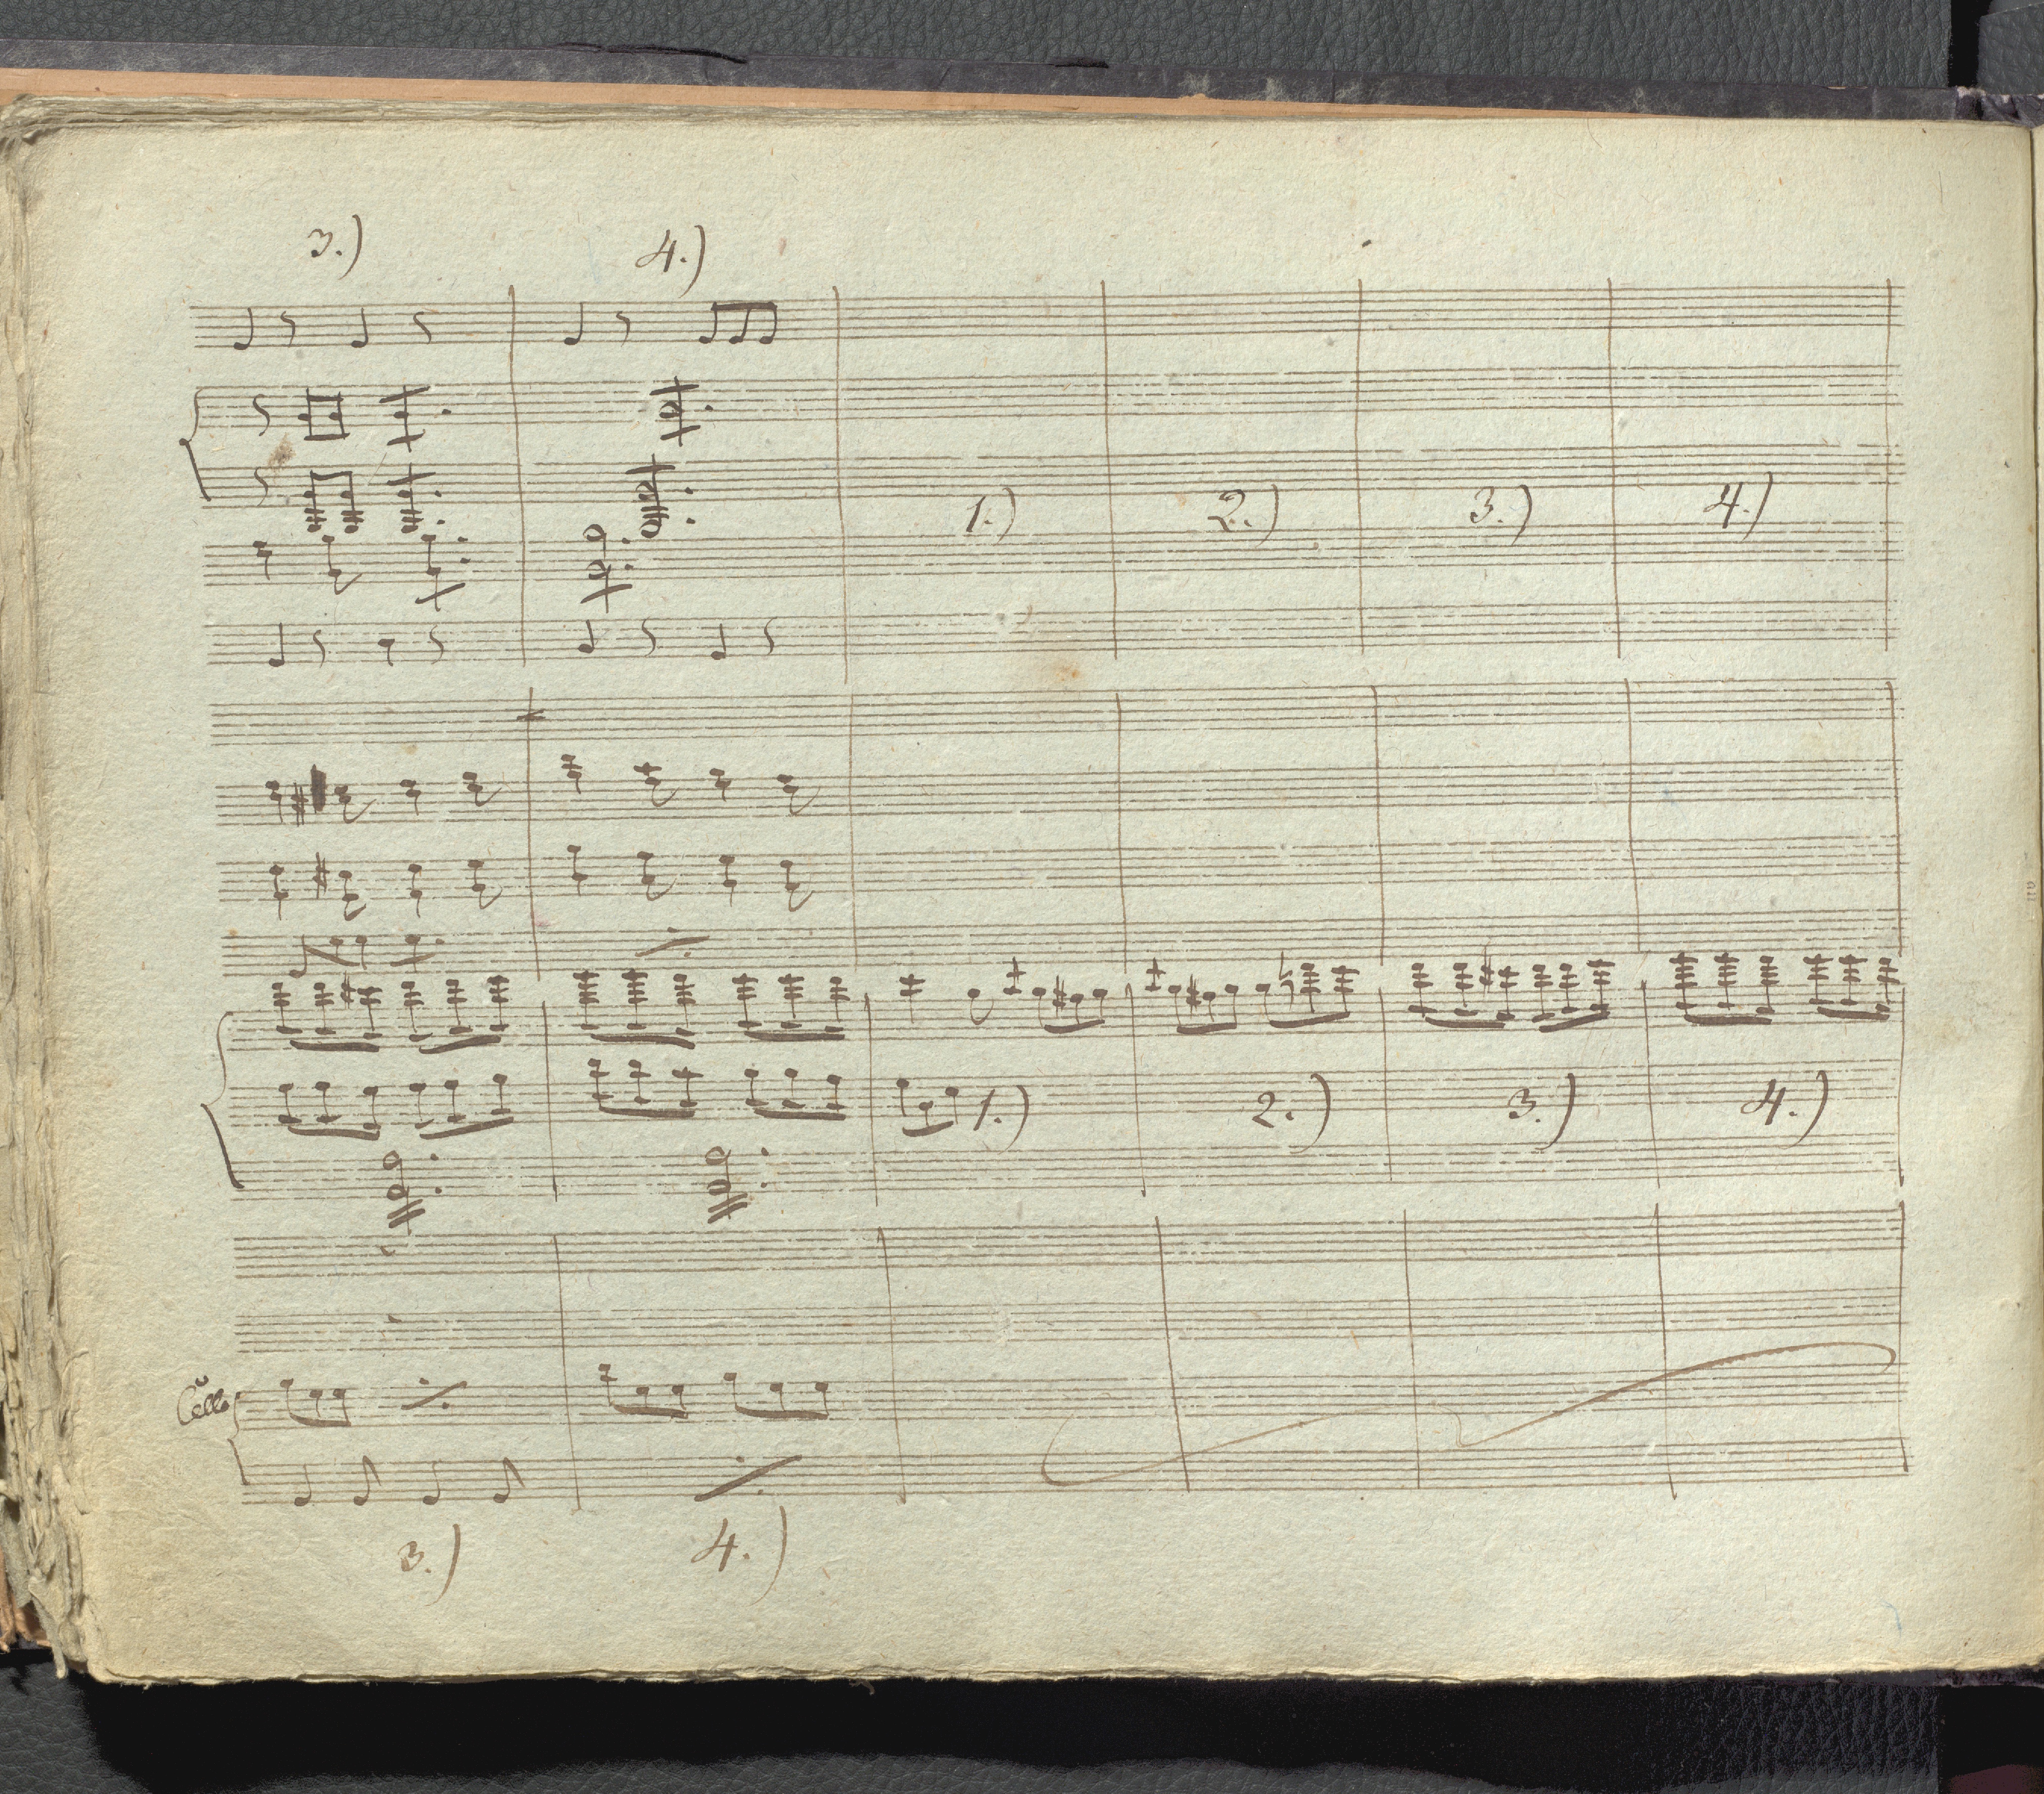 3.) 4.)
1.) 2.) 3.) 4.)
1.) 2.) 3.) 4.)
Cello
3.) 4.)